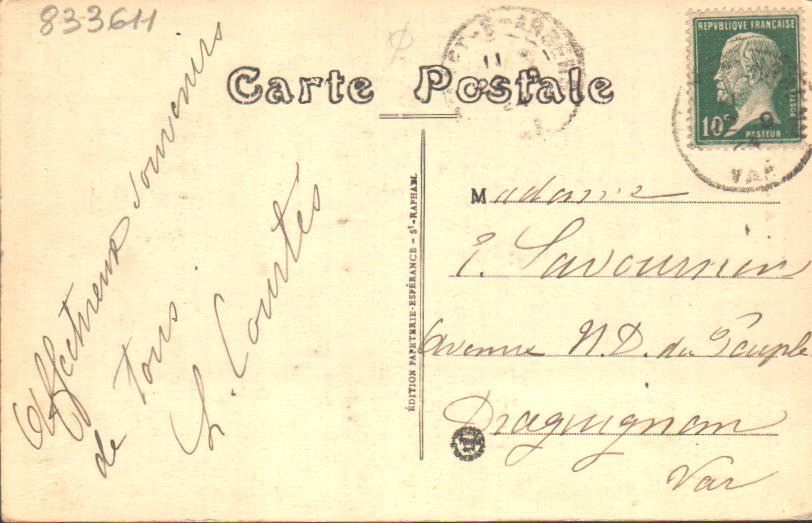 833611
Carte Postale
REPVBLIQUE FRANÇAISE
POSTES
10c
PASTEUR
VAR
Affectueux souvenirs
de tous.
L. Courtès
EDITION PAPETERIE-ESPÉRANCE - St-RAPHAEL
Madame
E. Savournin
Avenue N. D. du Peuple
Draguignan
Var